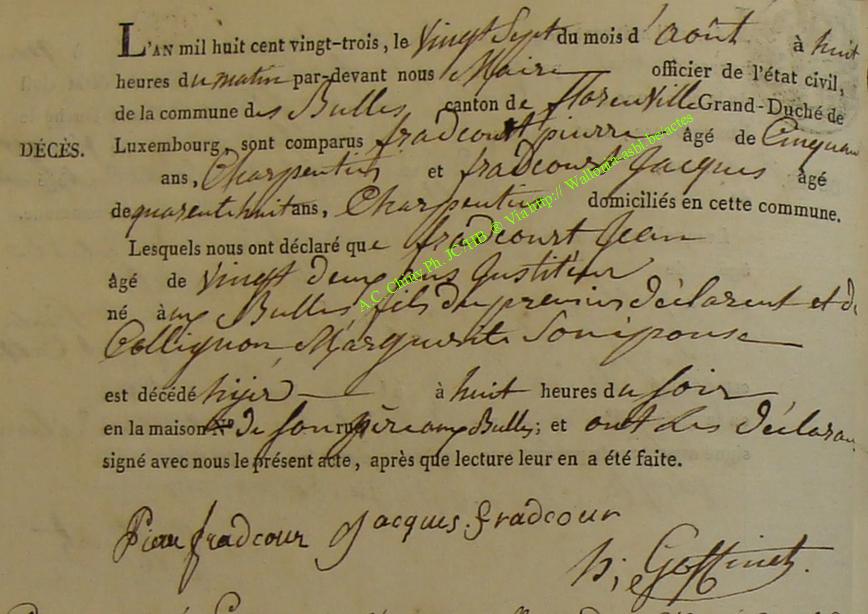 L'AN mil huit cent vingt-trois, le vingt Sept du mois d'août à huit
heures du matin par-devant nous Maire officier de l'état civil,
de la commune des Bulles canton de florenville Grand-Duché de
DÉCÈS. Luxembourg, sont comparus fradcourt pierre âgé de Cinquan
ans, Charpentier et fradcourt Jacques âgé
de quarente huit ans, Charpentier domiciliés en cette commune.
Lesquels nous ont déclaré que fradcourt Jean
âgé de vingt deux ans Justiteur
né à aux Bulles fils du premier déclarent et de
Collignon Marguerite Son épouse
est décédé hijer à huit heures du soir
en la maison N° de son rue père aux Bulles; et ont les déclaran
signé avec nous le présent acte, après que lecture leur en a été faite.
Pierre fradcour Jacques fradcour
Goffinet.
A.C. Chiny Ph. JC /HB ® Via http:// Wallonia-asbl.be/actes